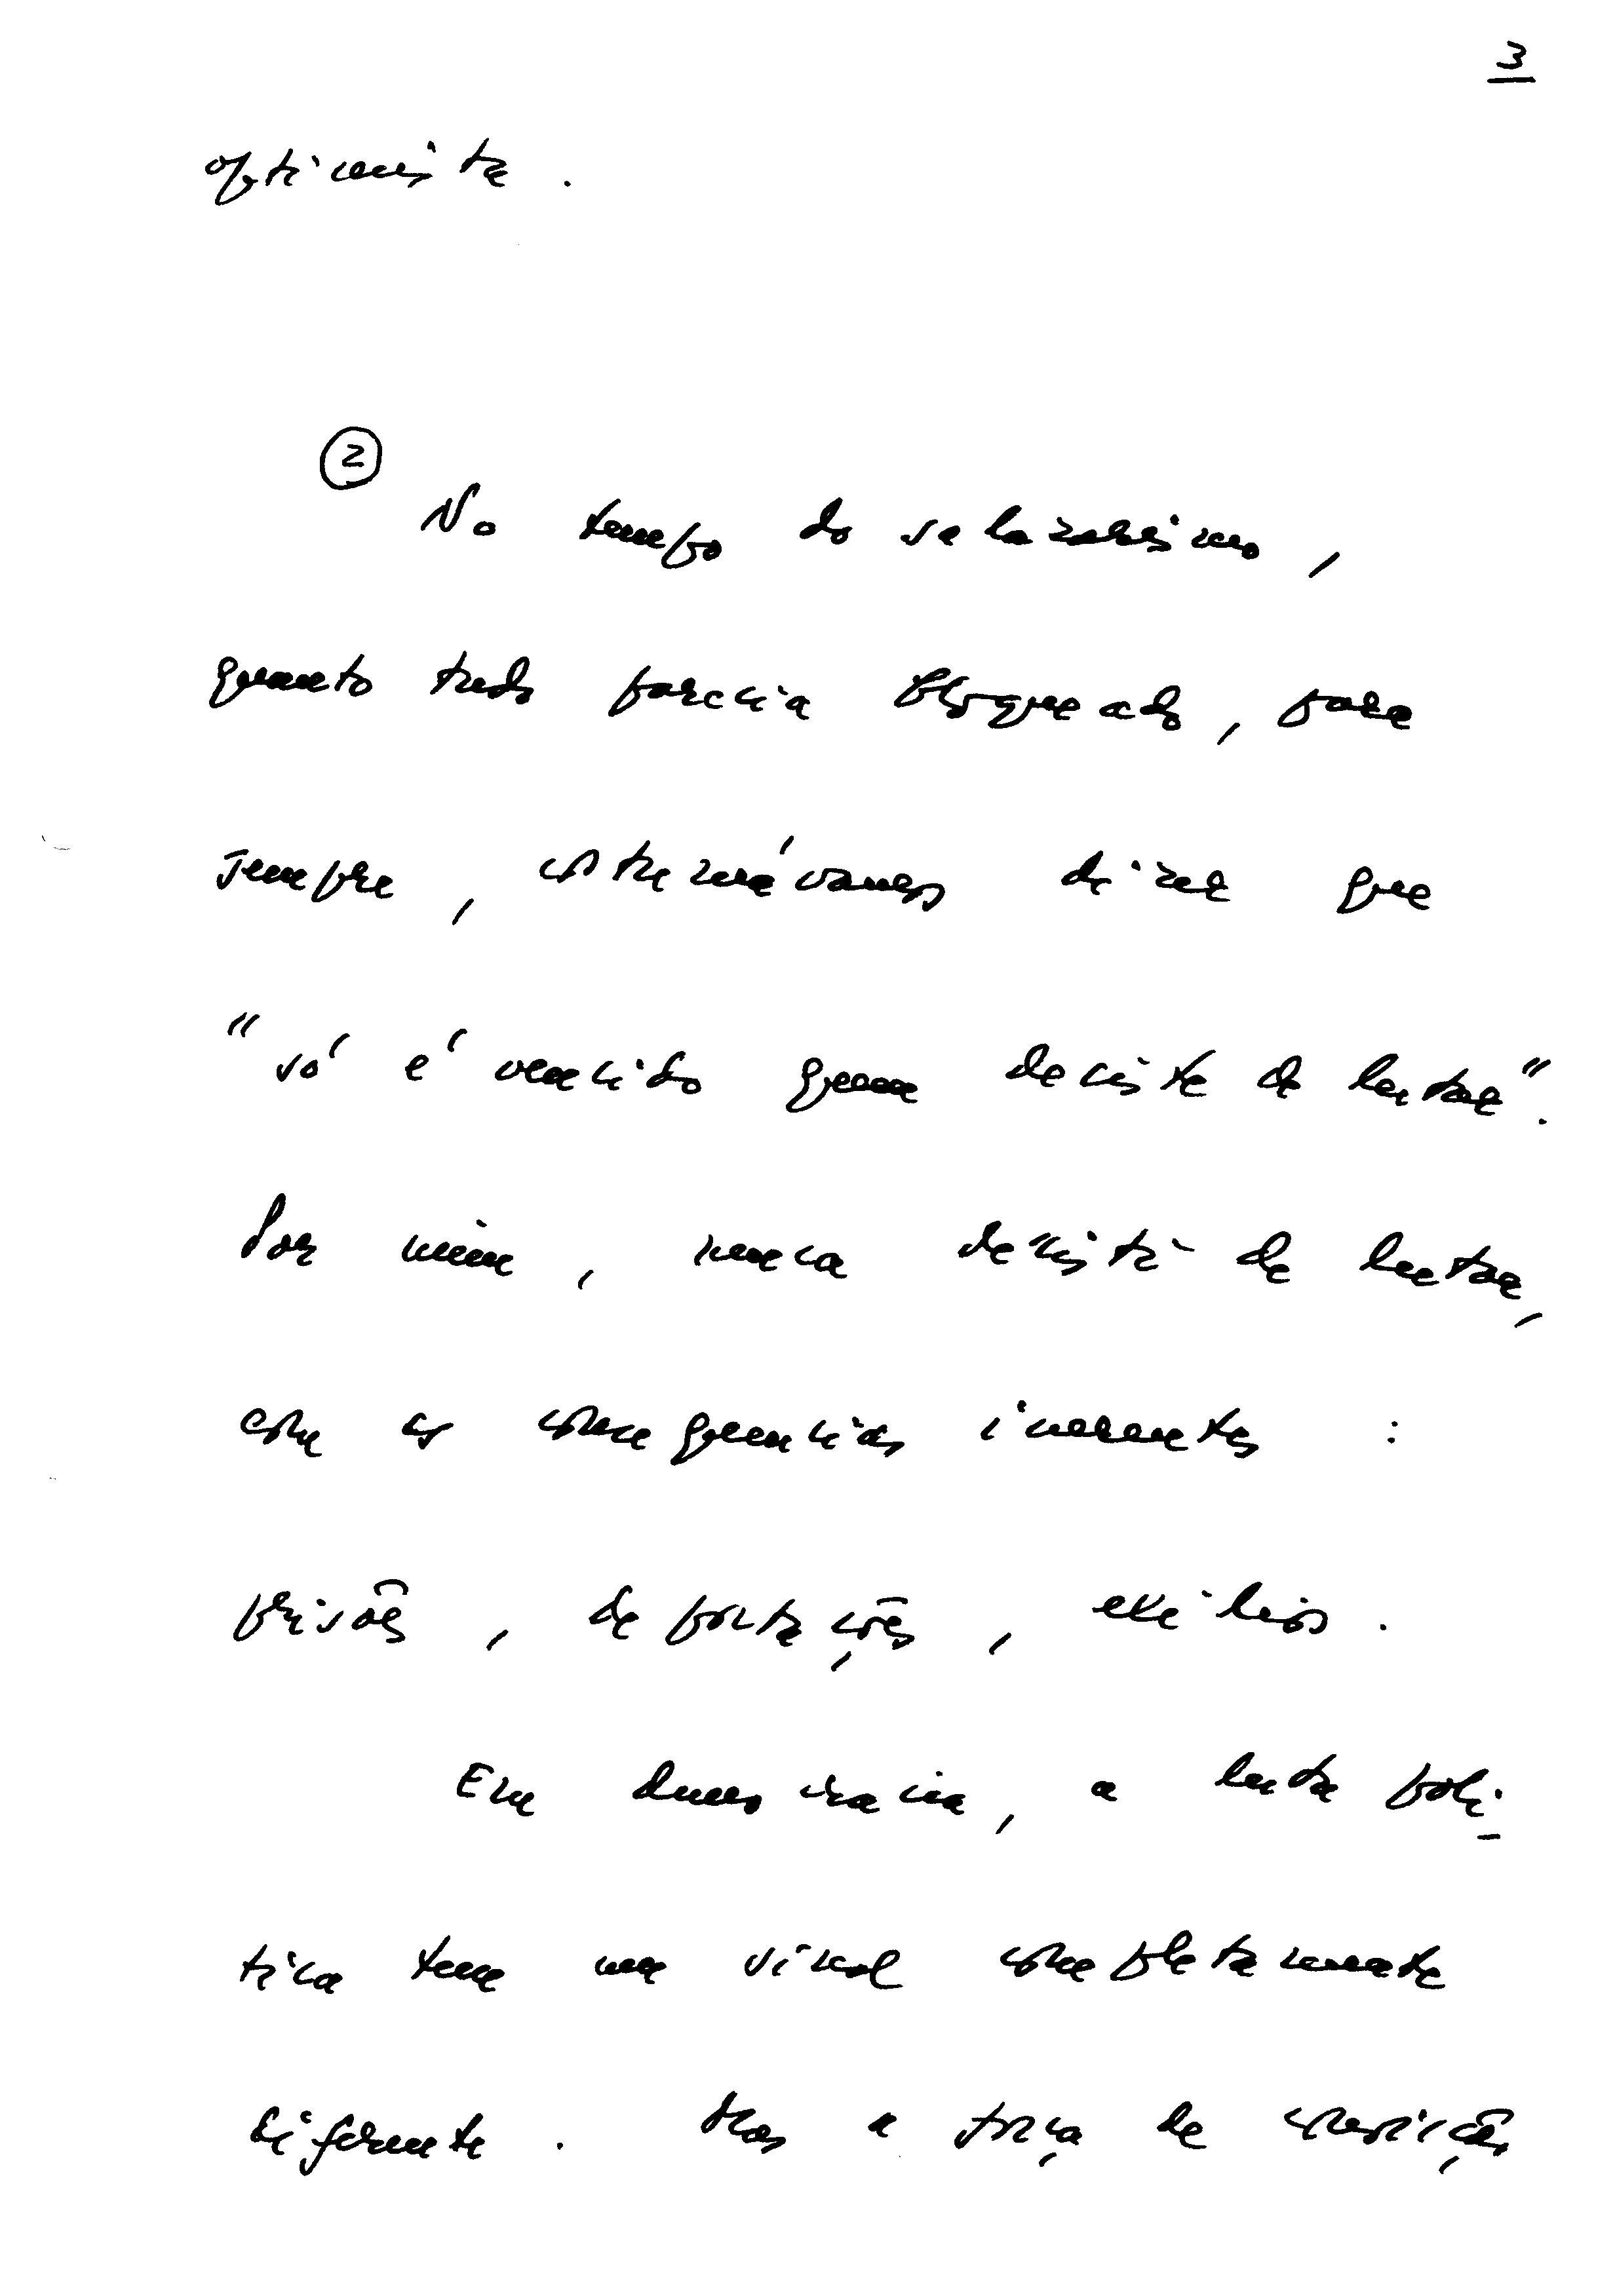 3
optimista.
2
No tempo do salazarismo,
quanto tudo parecia bloqueado, para
sempre, costumávamos dizer que
"só é vencido quem desiste de lutar".
Por mim, nunca desisti de lutar,
com as consequencias inerentes:
prisões, deportações, exílios.
Em democracia, a luta polí-
tica tem um sinal completamente
diferente. Mas a força de